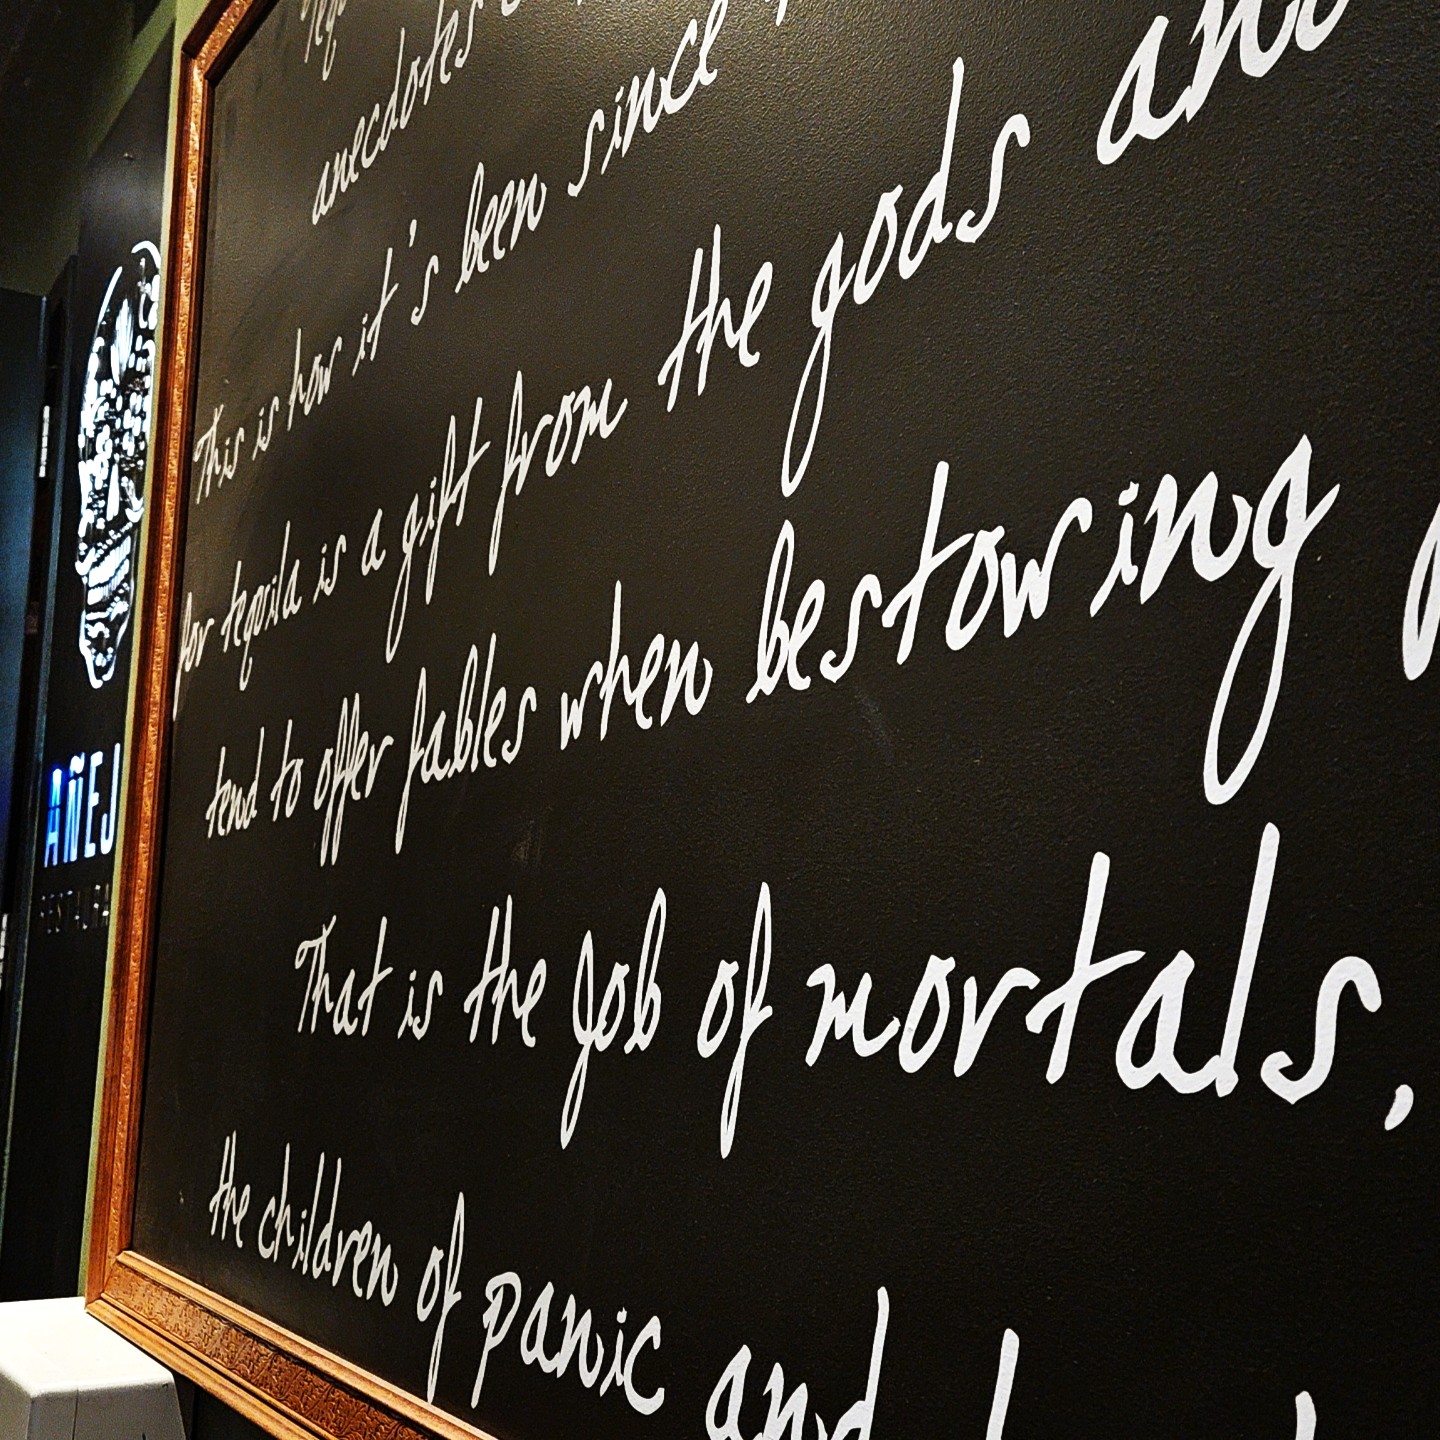 anecdotes
This is how it's been since
for tequila is a gift from the gods and
tend to offer fables when bestowing
That is the job of mortals,
the children of panic and
AÑEJ